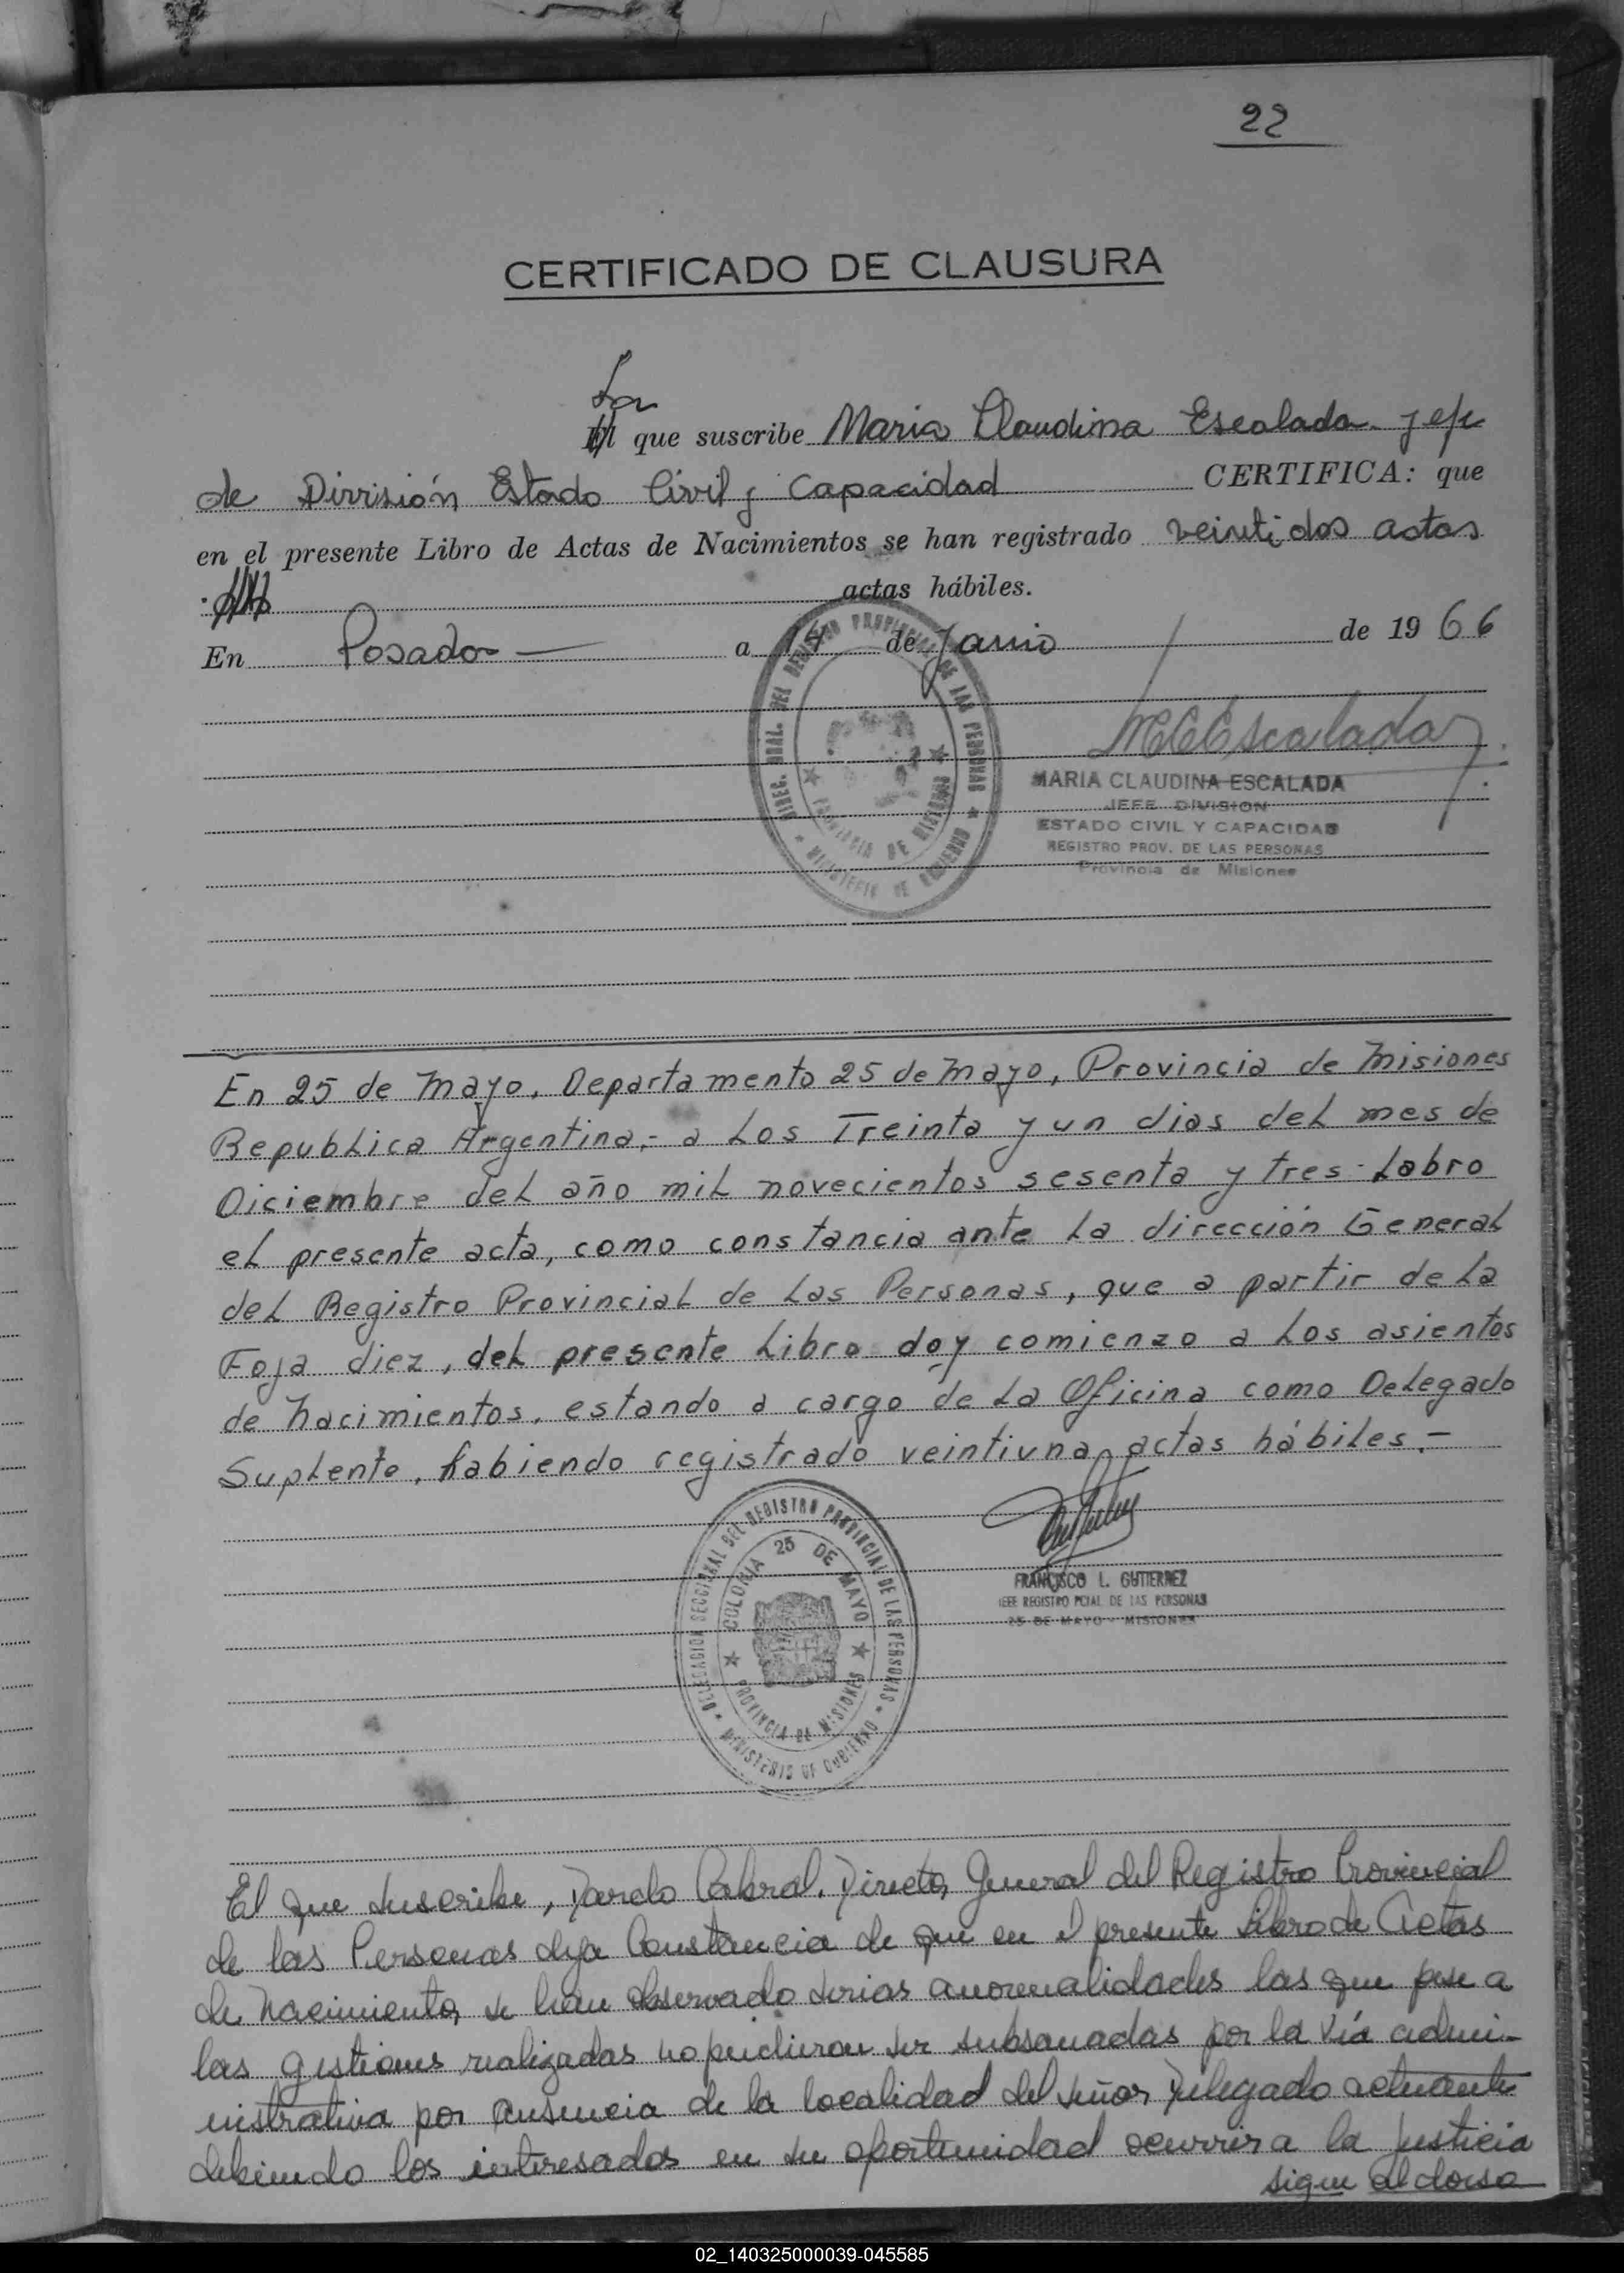 22
CERTIFICADO DE CLAUSURA
La
El que suscribe Maria Claudina Escalada jefe
de División Estado Civil y Capacidad CERTIFICA: que
en el presente Libro de Actas de Nacimientos se han registrado veintidos actas
actas hábiles.
En Posadas a 14 de Junio de 1966
DIREC. GRAL. DEL REGISTRO PROVINCIAL DE LAS PERSONAS * MINISTERIO DE GOBIERNO *
PROVINCIA DE MISIONES
MCEscalada
MARIA CLAUDINA ESCALADA
JEFE DIVISION
ESTADO CIVIL Y CAPACIDAD
REGISTRO PROV. DE LAS PERSONAS
Provincia de Misiones
En 25 de Mayo, Departamento 25 de Mayo, Provincia de Misiones
Republica Argentina,- a Los Treinta y un dias del mes de
Diciembre del año mil novecientos sesenta y tres. Labro
el presente acta, como constancia ante La dirección General
del Registro Provincial de Las Personas, que a partir de La
Foja diez, del presente Libro doy comienzo a Los asientos
de Nacimientos, estando a cargo de La Oficina como Delegado
Suplente, habiendo registrado veintiuna actas hábiles.-
DELEGACION SECCIONAL DEL REGISTRO PROVINCIAL DE LAS PERSONAS * MINISTERIO DE GOBIERNO *
COLONIA 25 DE MAYO
PROVINCIA DE MISIONES
FRANCISCO L. GUTIERREZ
JEFE REGISTRO PCIAL DE LAS PERSONAS
25 DE MAYO - MISIONES
El que suscribe, Dardo Cabral, Director General del Registro Provincial
de las Personas deja Constancia de que en el presente Libro de Actas
de Nacimientos, se han observado serias anormalidades las que pese a
las gestiones realizadas no pudieron ser subsanadas por la vía admi-
nistrativa por ausencia de la localidad del señor Delegado actuante
debiendo los interesados en su oportunidad ocurrir a la justicia
sigue al dorso
02_140325000039-045585